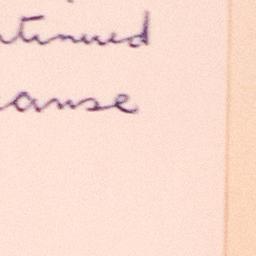 ntinued
ause